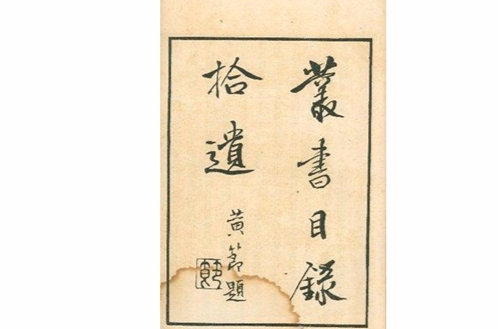 叢書目錄
拾遺
黃節題
節